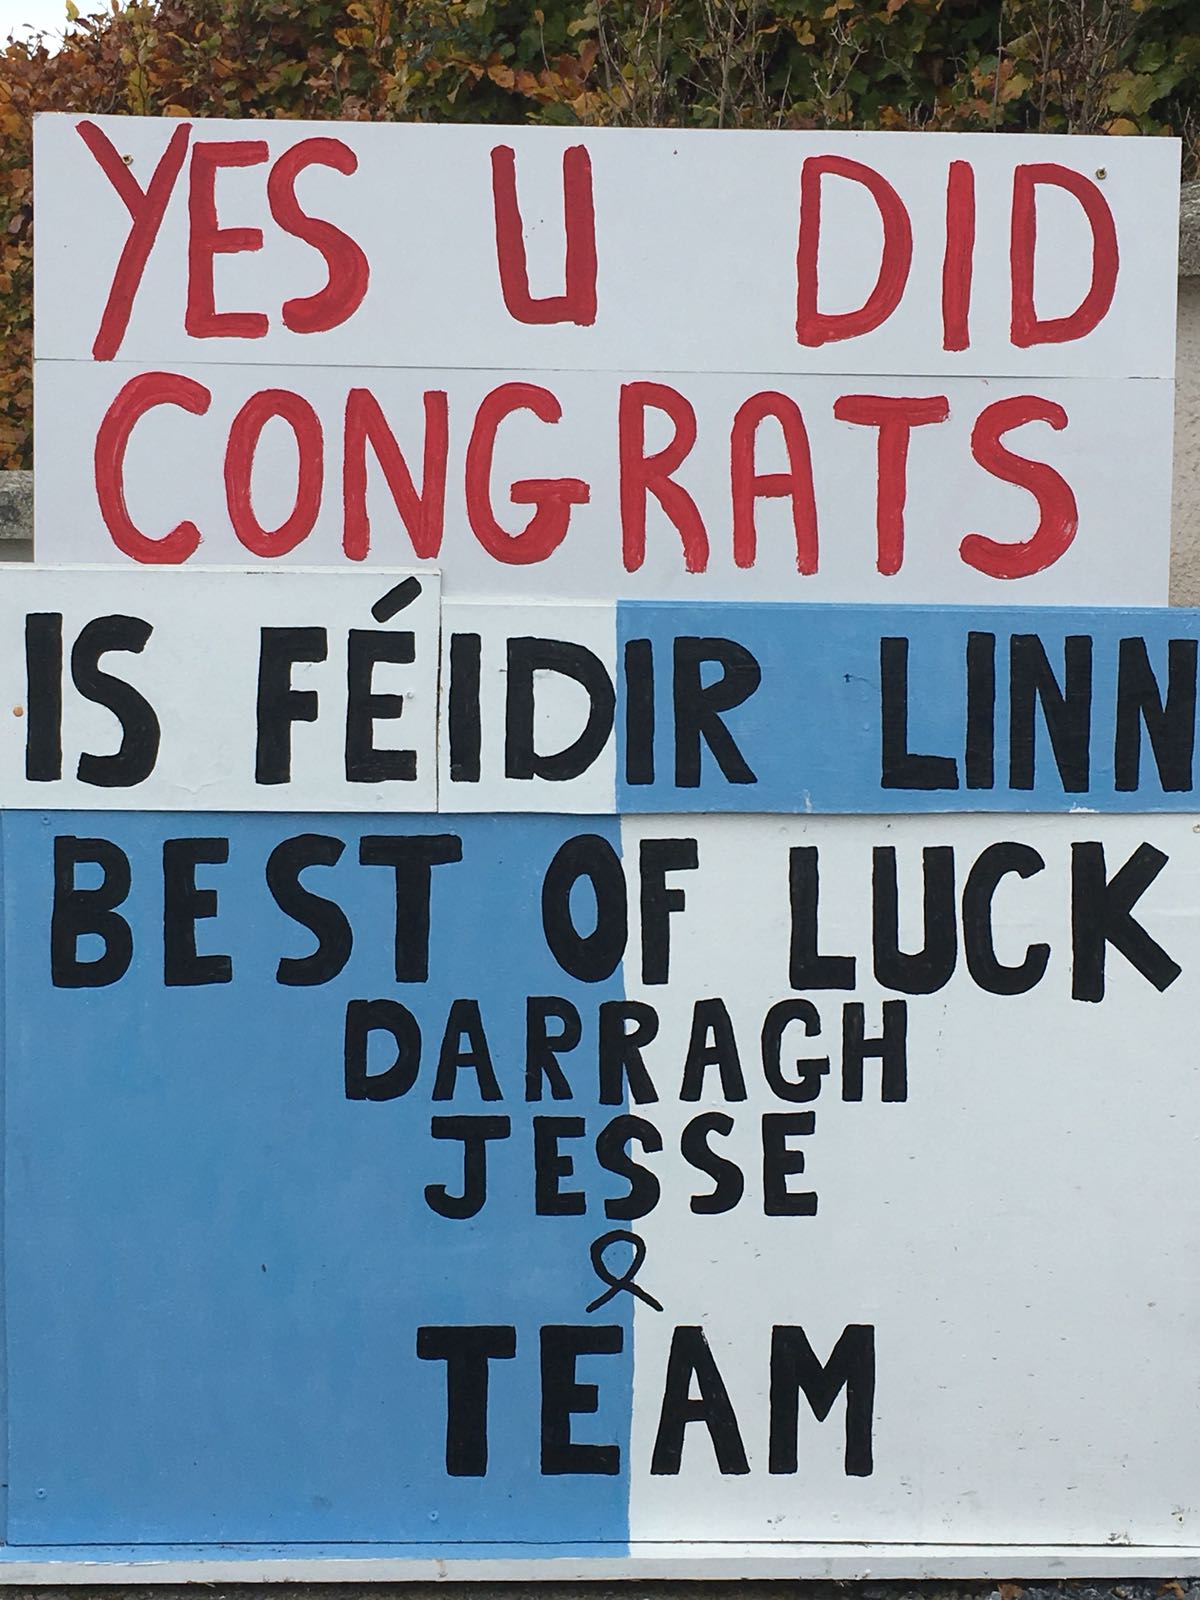 YES U DID
CONGRATS
IS FÉIDIR LINN
BEST OF LUCK
DARRAGH
JESSE
&
TEAM